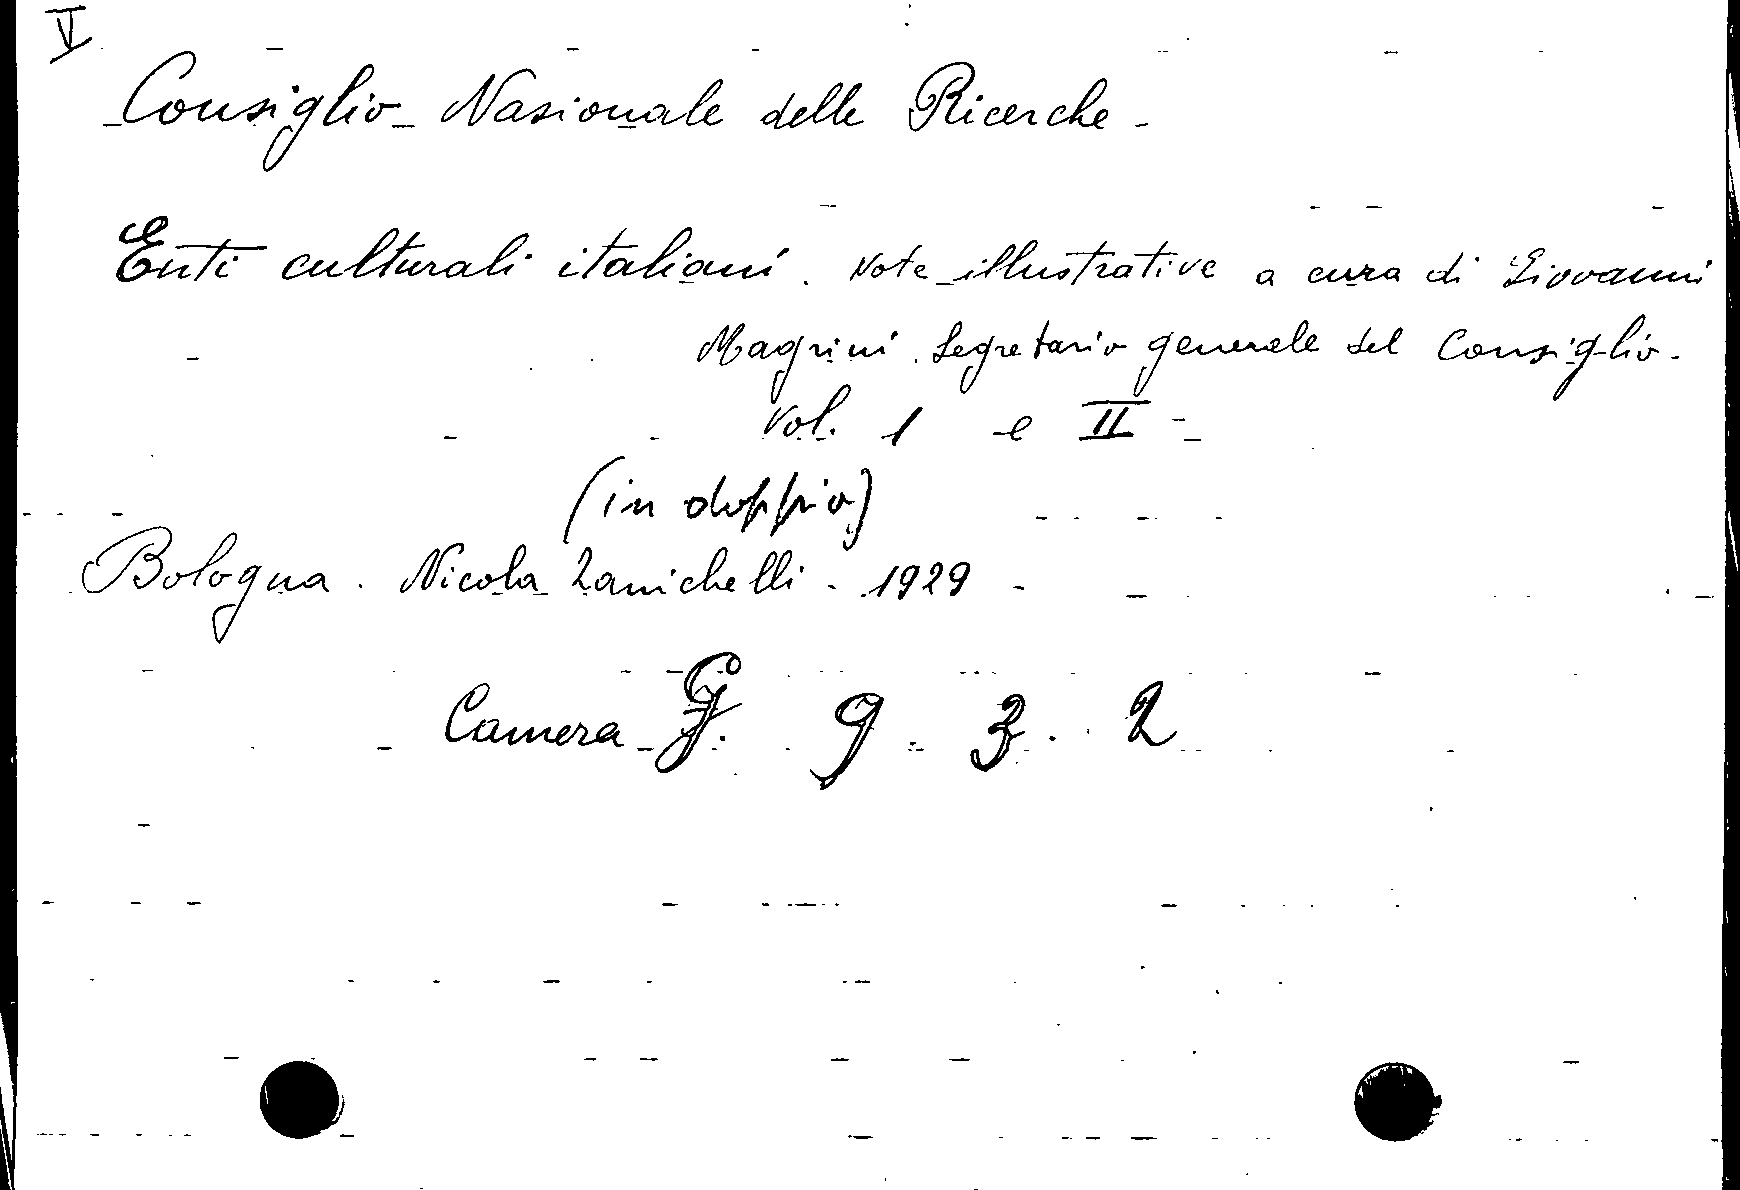 V
Consiglio Nazionale delle Ricerche -
Enti culturali italiani. Note illustrative a cura di Giovanni
Magrini. Segretario generale del Consiglio -
Vol. 1 e II -
(in doppio)
Bologna. Nicola Zanichelli - 1929 -
Camera G. 9 3. 2